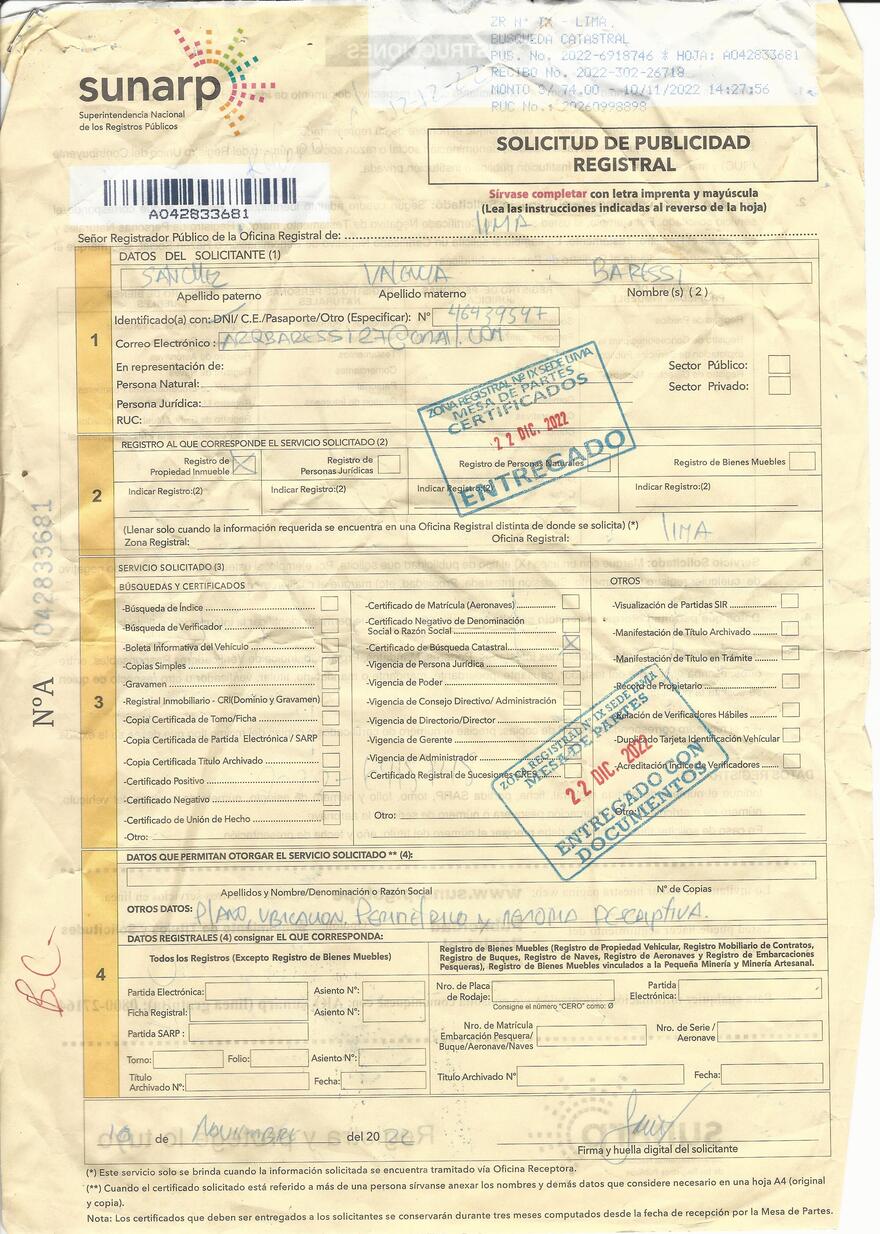 ZR N° IX - LIMA
BUSQUEDA CATASTRAL
PUB. No. 2022-6918746 * HOJA: A042833681
RECIBO No. 2022-302-26718
MONTO S/ 74.00 - 10/11/2022 14:27:56
RUC No.: 20260998898
sunarp
Superintendencia Nacional
de los Registros Públicos
SOLICITUD DE PUBLICIDAD
REGISTRAL
A042833681
Sírvase completar con letra imprenta y mayúscula
(Lea las instrucciones indicadas al reverso de la hoja)
Señor Registrador Público de la Oficina Registral de: LIMA
DATOS DEL SOLICITANTE (1)
SANCHEZ VALENCIA BARESSI
Apellido paterno Apellido materno Nombre (s) ( 2 )
1
Identificado(a) con: DNI/ C.E./Pasaporte/Otro (Especificar): N° 46439547
Correo Electrónico : ARQBARESSI27@GMAIL.COM
En representación de: Sector Público:
Persona Natural: Sector Privado:
Persona Jurídica:
RUC:
ZONA REGISTRAL Nº IX SEDE LIMA
MESA DE PARTES
CERTIFICADOS
22 DIC. 2022
ENTREGADO
REGISTRO AL QUE CORRESPONDE EL SERVICIO SOLICITADO (2)
2
Registro de Propiedad Inmueble
Registro de Personas Jurídicas
Registro de Personas Naturales
Registro de Bienes Muebles
Indicar Registro:(2) Indicar Registro:(2) Indicar Registro:(2) Indicar Registro:(2)
(Llenar solo cuando la información requerida se encuentra en una Oficina Registral distinta de donde se solicita) (*)
Zona Registral: Oficina Registral: LIMA
NºA 042833681
SERVICIO SOLICITADO (3)
3
BÚSQUEDAS Y CERTIFICADOS
-Búsqueda de Índice
-Búsqueda de Verificador
-Boleta Informativa del Vehículo
-Copias Simples
-Gravamen
-Registral Inmobiliario - CRI(Dominio y Gravamen)
-Copia Certificada de Tomo/Ficha
-Copia Certificada de Partida Electrónica / SARP
-Copia Certificada Título Archivado
-Certificado Positivo
-Certificado Negativo
-Certificado de Unión de Hecho
-Otro:
-Certificado de Matrícula (Aeronaves)
-Certificado Negativo de Denominación
Social o Razón Social
-Certificado de Búsqueda Catastral
-Vigencia de Persona Jurídica
-Vigencia de Poder
-Vigencia de Consejo Directivo/ Administración
-Vigencia de Directorio/Director
-Vigencia de Gerente
-Vigencia de Administrador
-Certificado Registral de Sucesiones CRES
Otro:
OTROS
-Visualización de Partidas SIR
-Manifestación de Título Archivado
-Manifestación de Título en Trámite
-Récord de Propietario
-Relación de Verificadores Hábiles
-Duplicado Tarjeta Identificación Vehicular
-Acreditación Índice de Verificadores
Otro:
ZONA REGISTRAL Nº IX SEDE LIMA
MESA DE PARTES
22 DIC. 2022
ENTREGADO CON
DOCUMENTOS
DATOS QUE PERMITAN OTORGAR EL SERVICIO SOLICITADO ** (4):
Apellidos y Nombre/Denominación o Razón Social N° de Copias
OTROS DATOS: PLANO, UBICACION, PERIMETRICO Y MEMORIA DESCRIPTIVA.
DATOS REGISTRALES (4) consignar EL QUE CORRESPONDA:
4
Todos los Registros (Excepto Registro de Bienes Muebles)
Partida Electrónica: Asiento N°:
Ficha Registral: Asiento N°:
Partida SARP :
Tomo: Folio: Asiento N°:
Título
Archivado N°: Fecha:
Registro de Bienes Muebles (Registro de Propiedad Vehicular, Registro Mobiliario de Contratos,
Registro de Buques, Registro de Naves, Registro de Aeronaves y Registro de Embarcaciones
Pesqueras), Registro de Bienes Muebles vinculados a la Pequeña Minería y Minería Artesanal.
Nro. de Placa
de Rodaje:
Partida
Electrónica:
Consigne el número "CERO" como: Ø
Nro. de Matrícula
Embarcación Pesquera/
Buque/Aeronave/Naves
Nro. de Serie /
Aeronave
Título Archivado N° Fecha:
10 de NOVIEMBRE del 2022
Firma y huella digital del solicitante
(*) Este servicio solo se brinda cuando la información solicitada se encuentra tramitado vía Oficina Receptora.
(**) Cuando el certificado solicitado está referido a más de una persona sírvanse anexar los nombres y demás datos que considere necesario en una hoja A4 (original
y copia).
Nota: Los certificados que deben ser entregados a los solicitantes se conservarán durante tres meses computados desde la fecha de recepción por la Mesa de Partes.